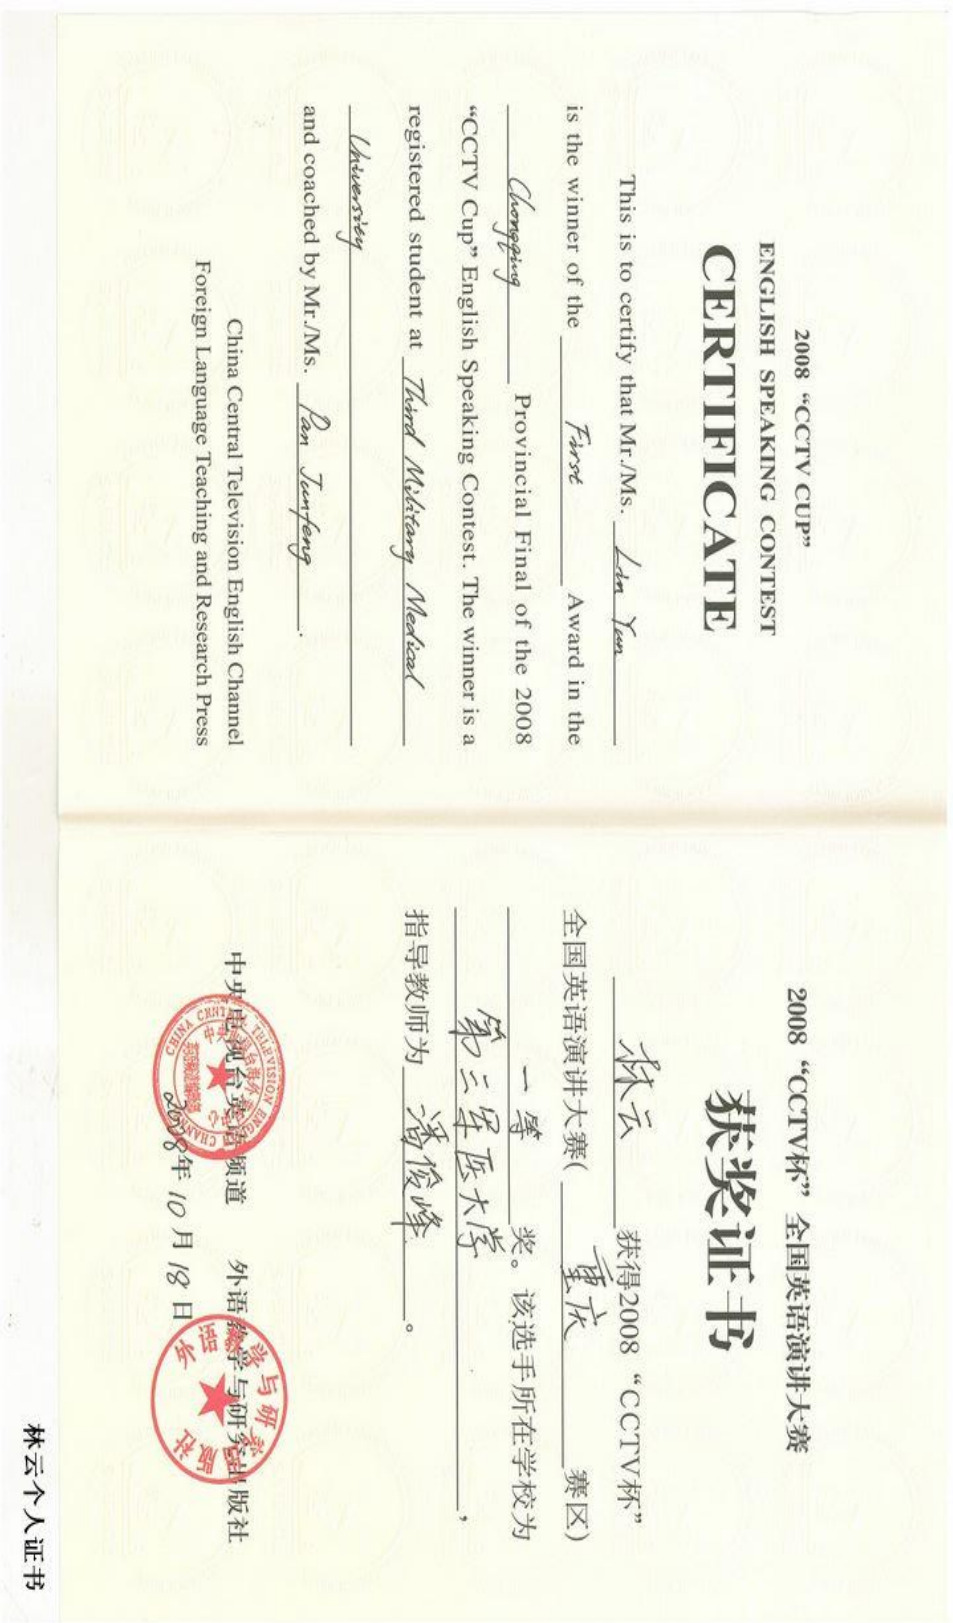 2008 “CCTV CUP”
ENGLISH SPEAKING CONTEST
CERTIFICATE
This is to certify that Mr./Ms. Lin Yun
is the winner of the First Award in the
Chongqing Provincial Final of the 2008
“CCTV Cup” English Speaking Contest. The winner is a
registered student at Third Military Medical
University
and coached by Mr./Ms. Pan Junfeng.
China Central Television English Channel
Foreign Language Teaching and Research Press
2008 “CCTV杯” 全国英语演讲大赛
获奖证书
林云 获得2008 “CCTV杯”
全国英语演讲大赛( 重庆 赛区)
一等 奖。该选手所在学校为
第三军医大学,
指导教师为 潘俊峰。
中央电视台英语频道 外语教学与研究出版社
2008年10月18日
CHINA CENTRAL TELEVISION ENGLISH CHANNEL
外语教学与研究出版社
林云个人证书